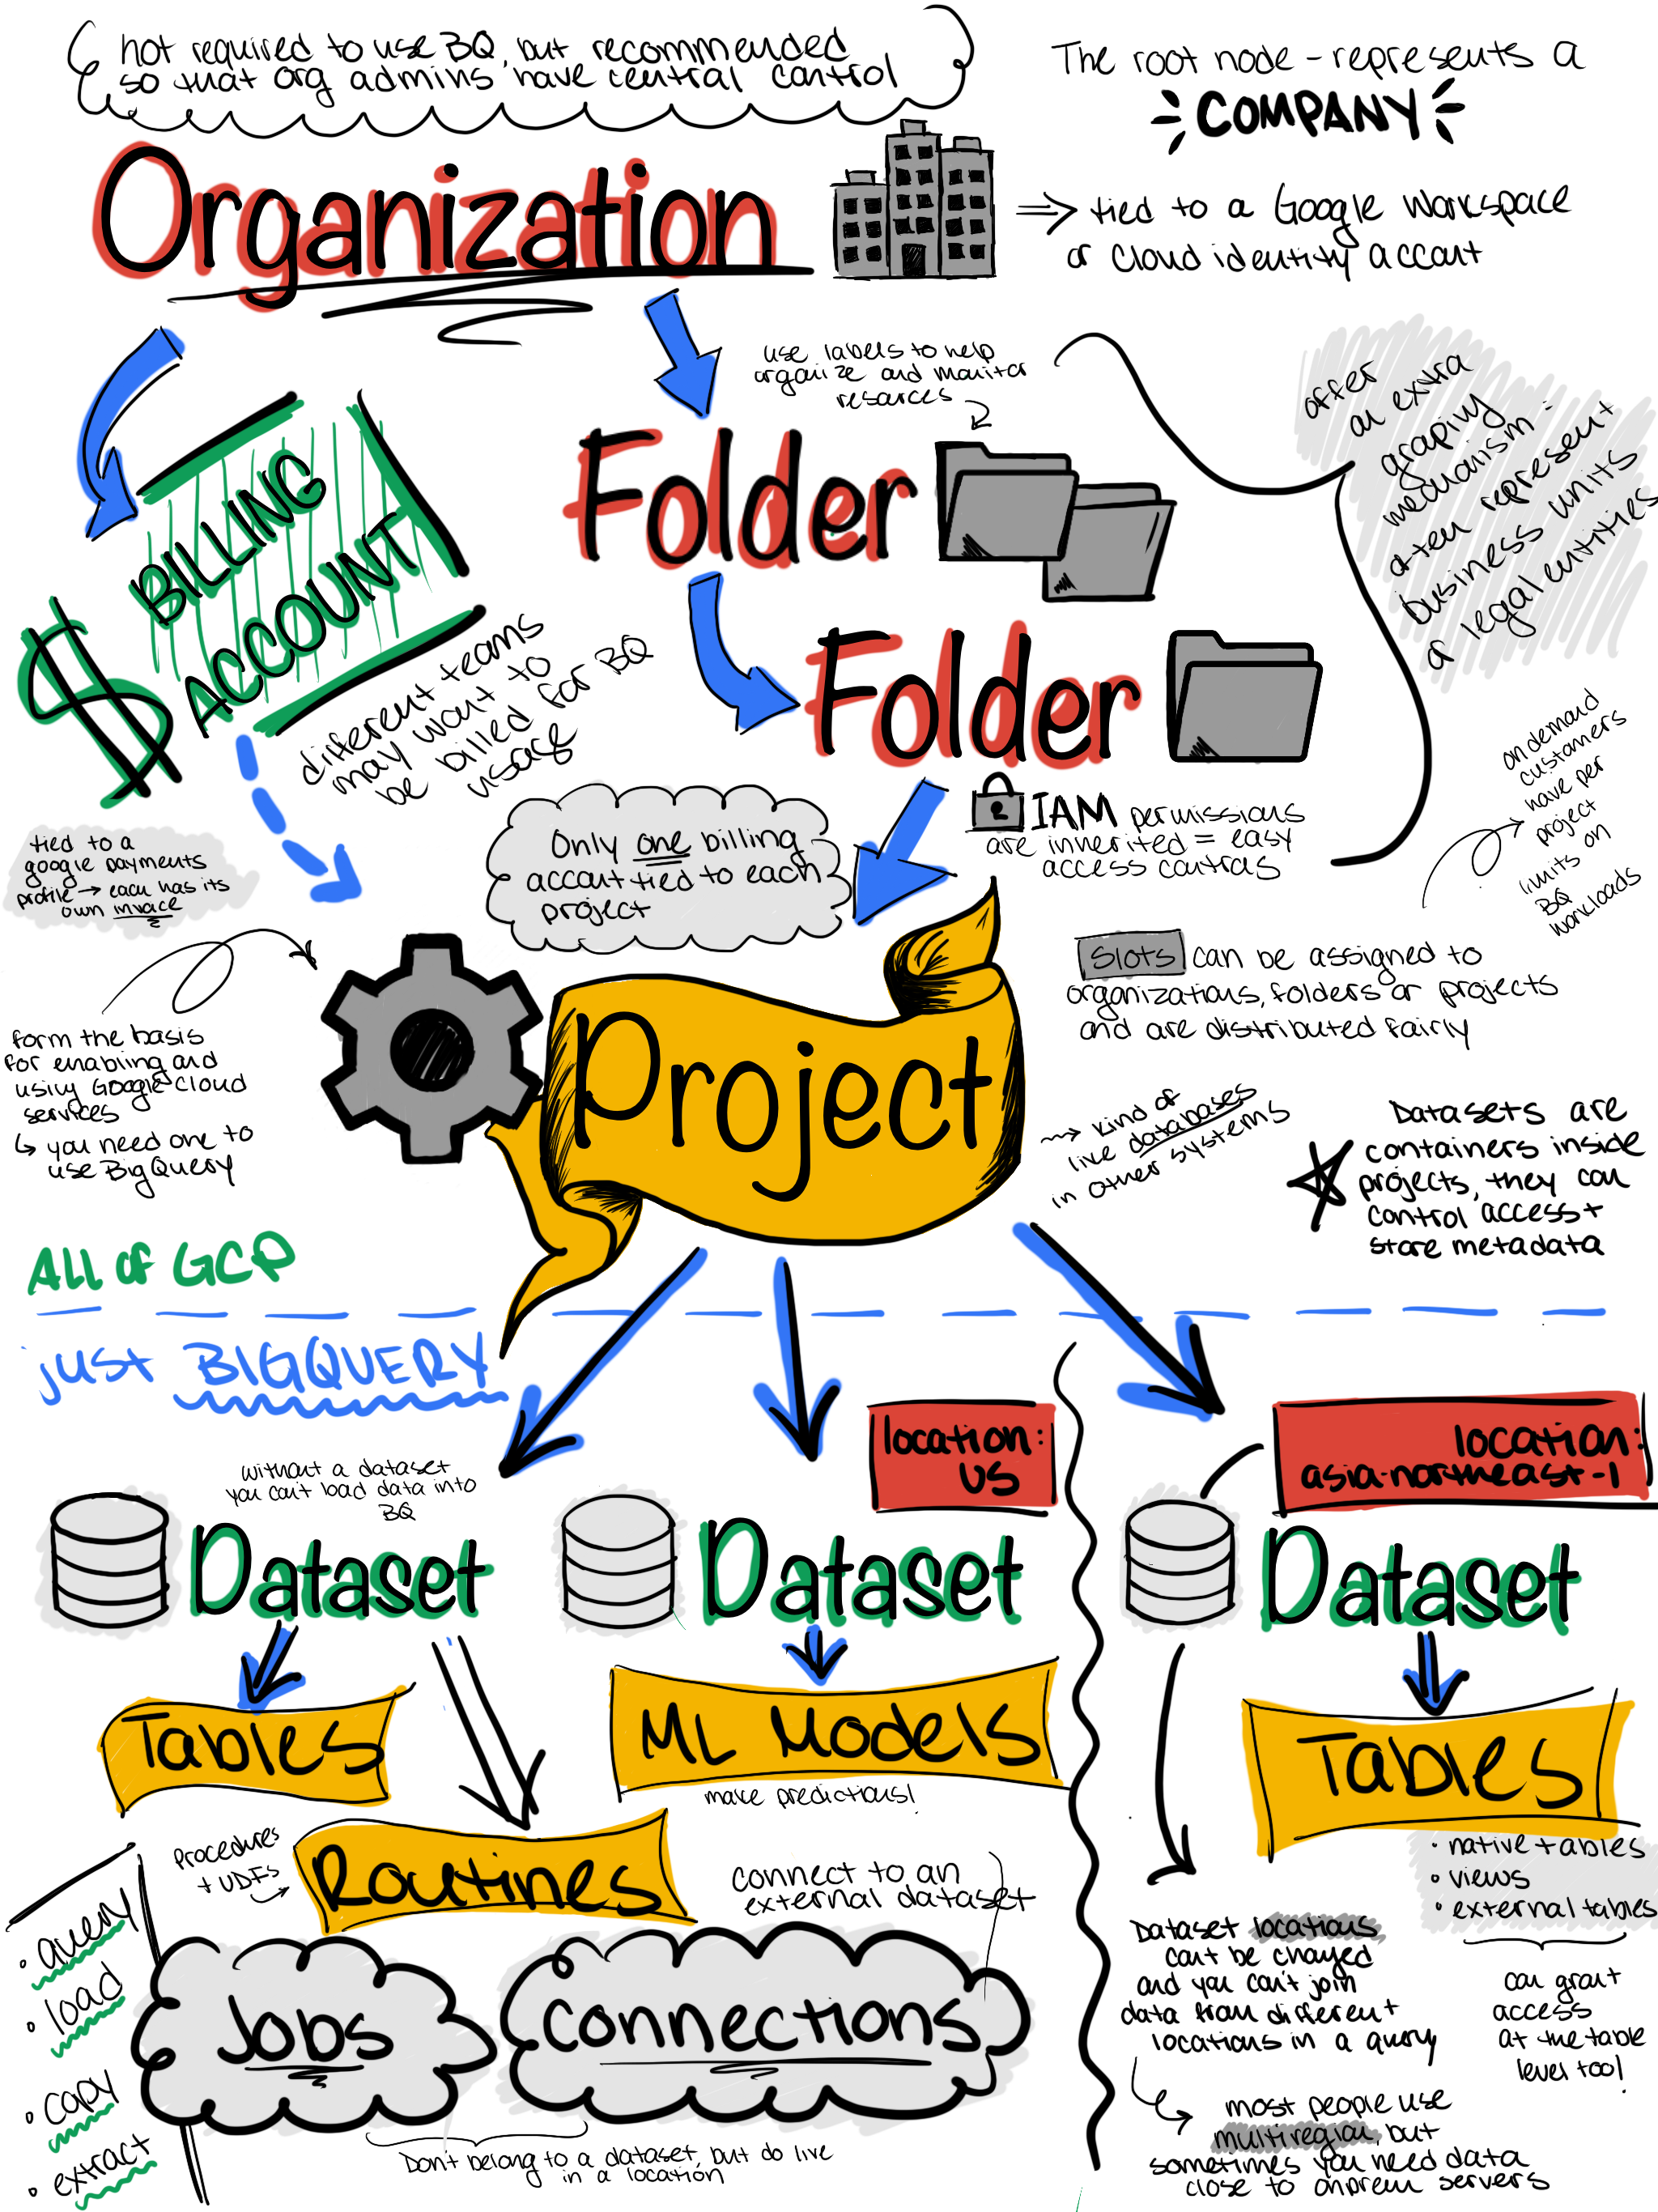 not required to use BQ, but recommended
so that org admins have central control
The root node - represents a
COMPANY
Organization
⇒ tied to a Google Workspace
or Cloud identity account
use labels to help
organize and monitor
resources
offer
an extra
grouping
mechanism =
often represent
business units
or legal entities
Folder
$ BILLING
ACCOUNT
different teams
may want to
be billed for BQ
usage
Folder
IAM permissions
are inherited = easy
access controls
on demand
customers
have per
project
limits on
BQ
workloads
tied to a
google payments
profile → each has its
own invoice
Only one billing
account tied to each
project
Slots can be assigned to
organizations, folders or projects
and are distributed fairly
form the basis
for enabling and
using Google Cloud
services
↳ you need one to
use BigQuery
Project
kind of
like databases
in other systems
Datasets are
containers inside
projects, they can
control access +
store metadata
ALL of GCP
just BIGQUERY
location:
US
location:
asia-northeast-1
without a dataset
you can't load data into
BQ
Dataset
Dataset
Dataset
Tables
ML Models
make predictions!
Tables
• native tables
• views
• external tables
can grant
access
at the table
level too!
Procedures
+ UDFs
Routines
connect to an
external dataset
• query
• load
• copy
• extract
Jobs
Connections
Don't belong to a dataset, but do live
in a location
Dataset locations
can't be changed
and you can't join
data from different
locations in a query
most people use
multiregion, but
sometimes you need data
close to onprem servers